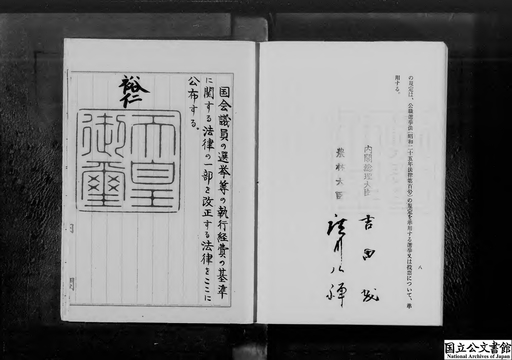 の規定は、公職選挙法(昭和二十五年法律第百号)の規定を準用する選挙又は投票について、準
用する。
八
内閣総理大臣
吉田茂
農林大臣
廣川弘禅
国会議員の選挙等の執行経費の基準
に関する法律の一部を改正する法律をここに
公布する。
裕仁
天皇
御璽
国立公文書館
National Archives of Japan